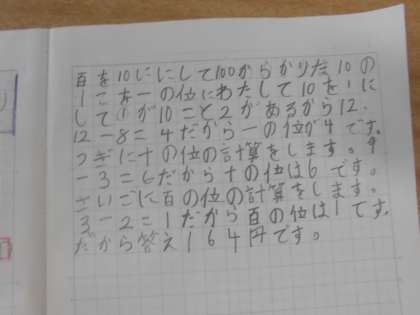 百を10にして100からかりた10の
1こを一の位にわたして10を1に
して①が10こと2があるから12.
12-8=4だから一の位が4です。
つぎに十の位の計算をします。9
-3=6だから十の位は6です。
さいごに百の位の計算をします。
3-2=1だから百の位は1です。
だから答え164円です。